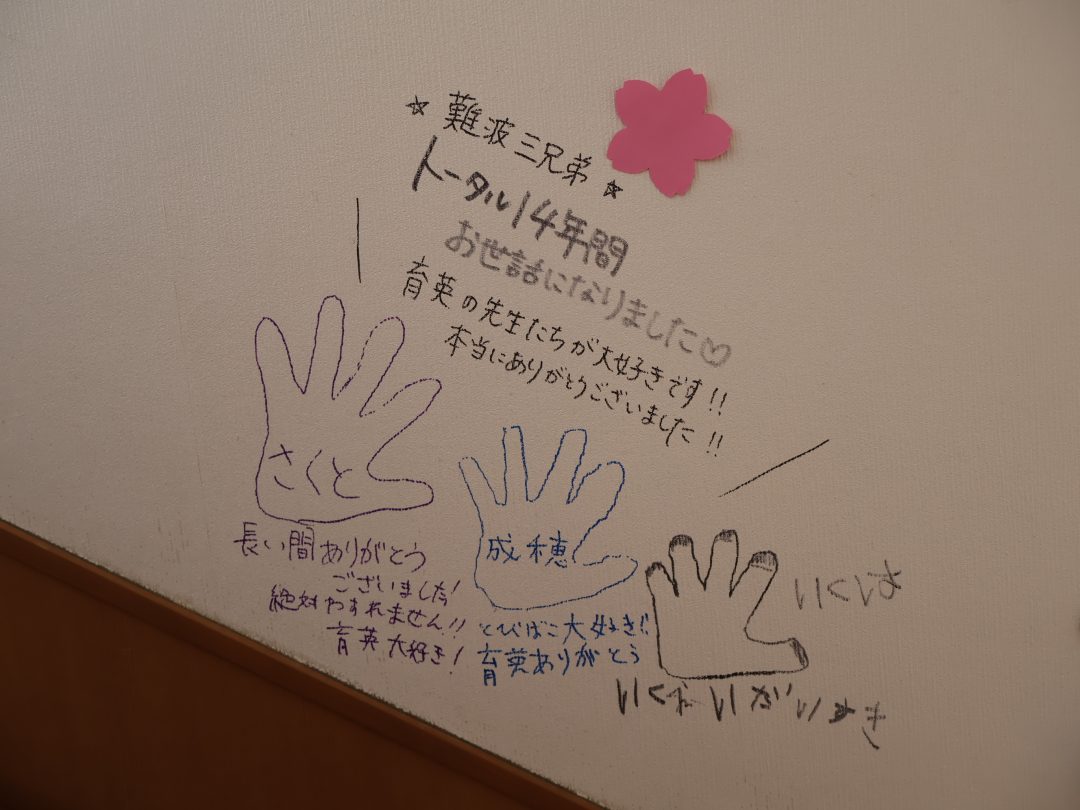 ☆ 難波三兄弟 ☆
トータル14年間
お世話になりました♡
育英の先生たちが大好きです!!
本当にありがとうございました!!
さくと
長い間ありがとう
ございました!
絶対わすれません!!
育英大好き!
成穂
とびばこ大好き!!
育英ありがとう
いくえいだいすき